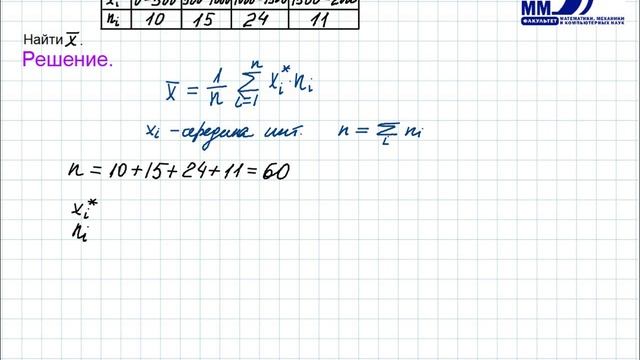 xi 0-500 500-1000 1000-1500 1500-2000
ni 10 15 24 11
ММ
ФАКУЛЬТЕТ МАТЕМАТИКИ, МЕХАНИКИ И КОМПЬЮТЕРНЫХ НАУК
Найти x̅.
Решение.
x̅ = 1/n ∑ᵢ₌₁ⁿ xᵢ* · nᵢ
xᵢ - середина инт. n = ∑ᵢ nᵢ
n = 10+15+24+11=60
xᵢ*
nᵢ